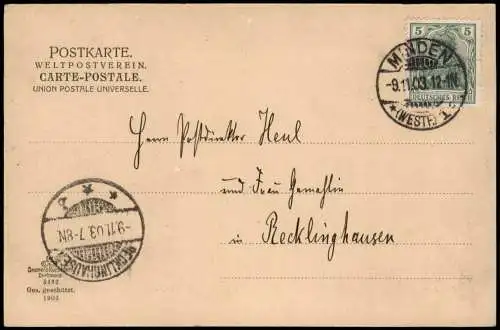 POSTKARTE.
WELTPOSTVEREIN.
CARTE-POSTALE.
UNION POSTALE UNIVERSELLE.
5 5
DEUTSCHES REICH
MINDEN
-9.11.03.12-1N.
* (WESTF.) 1
Herrn Postdirektor Henl
und Frau Gemahlin
in Recklinghausen
RECKLINGHAUSEN
-9.11.03.7-8N.
* * 2
Dortmund
5192
Ges. geschützt.
1903